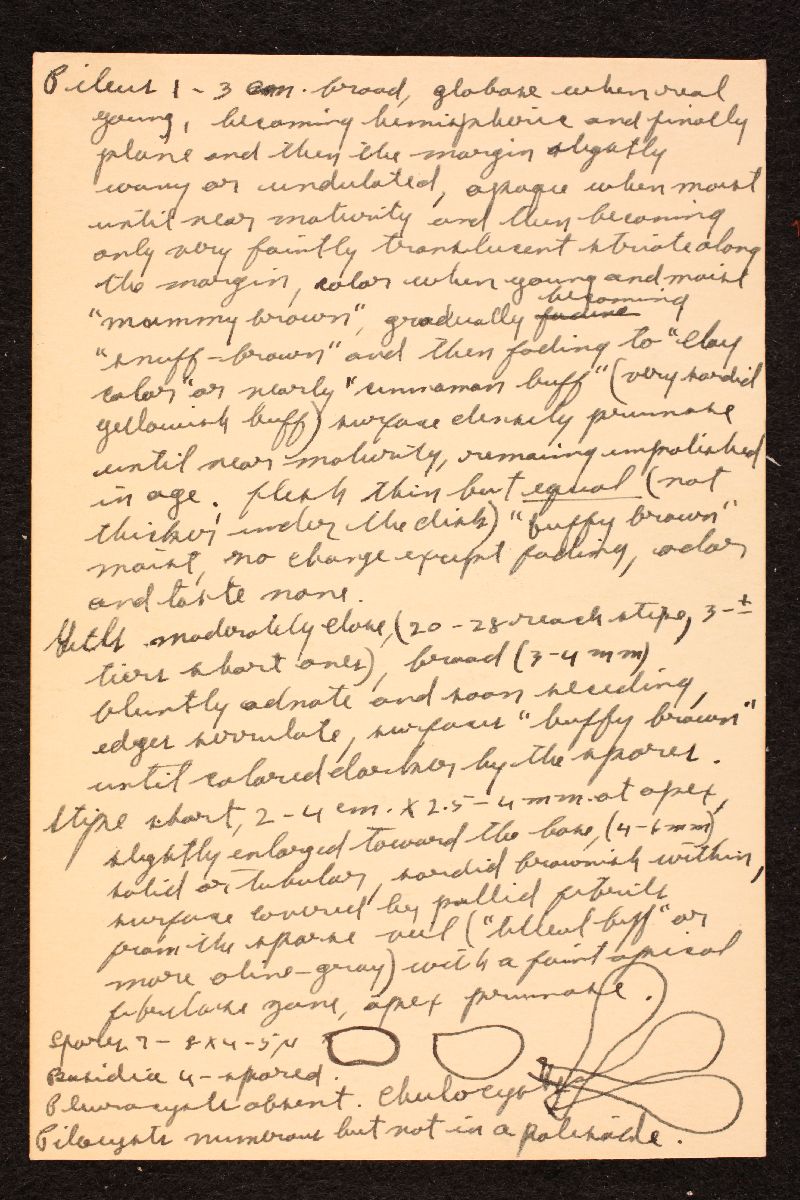 Pileus 1-3 cm. broad, globose when real
young, becoming hemispheric and finally
plane and then the margin slightly
wavy or undulated, opaque when moist
until near maturity and then becoming
only very faintly translucent striate along
the margin, color when young and moist
"mummy brown", gradually becoming
"snuff-brown" and then fading to "clay
color" or nearly "cinnamon buff" (very sordid
yellowish buff) surface densely pruinose
until near maturity, remaining unpolished
in age. Flesh thin but equal (not
thicker under the disk) "buffy brown"
moist, no change except fading, odor
and taste none.
Gills moderately close, (20-28 reach stipe, 3-±
tiers short ones), broad (3-4 mm)
bluntly adnate and soon seceding,
edges serrulate, surfaces "buffy brown"
until colored darker by the spores.
Stipe short, 2-4 cm. X 2.5-4 mm. at apex,
slightly enlarged toward the base, (4-6 mm)
solid or tubular, sordid brownish within,
surface covered by pallid fibrils
from the sparse veil ("tilleul buff" or
more olive-gray) with a faint apical
fibrillose zone, apex pruinose.
Spores 7-8 x 4-5 µ
Basidia 4-spored.
Pleurocysts absent. Cheilocysts
Pilocysts numerous but not in a palisade.